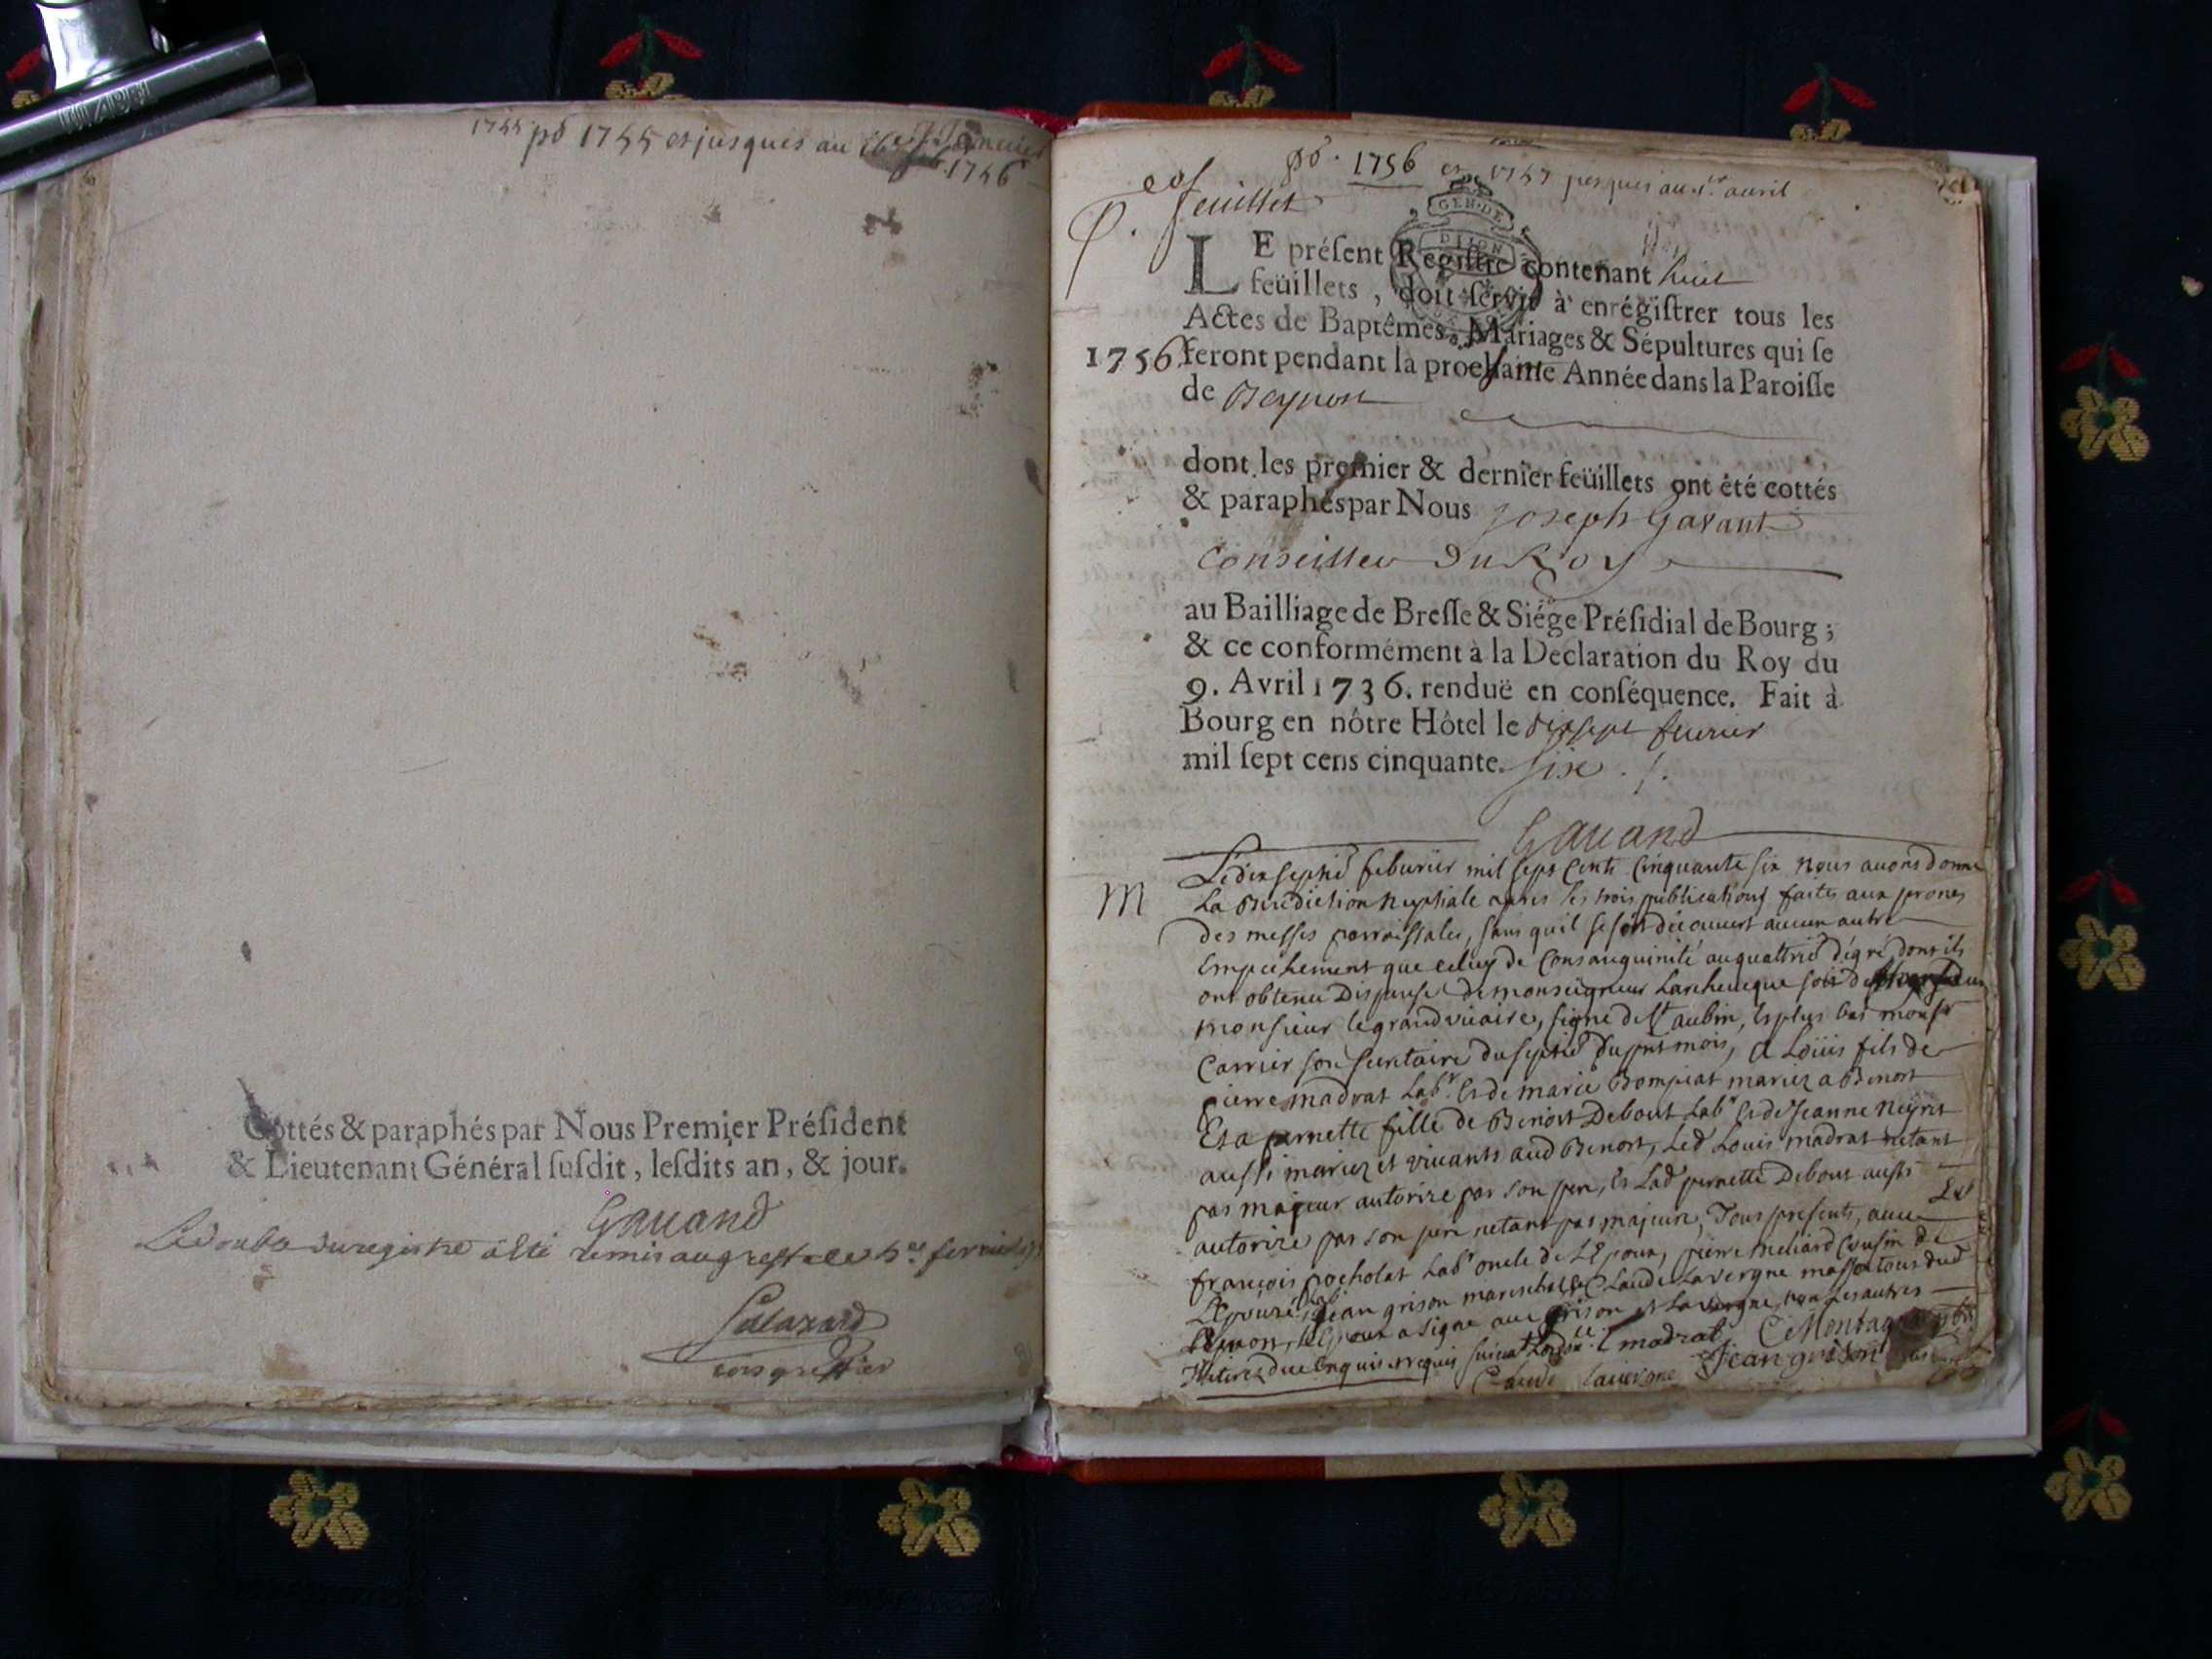 1755 po 1755 et jusques au
1756
Cottés & paraphés par Nous Premier Préſident
& Lieutenant Général ſuſdit, leſdits an, & jour.
Gauand
Le double du registre a été remis au greffe le
Salazard
greffier
po. 1756 et 1757 jusques au 1er auril
feuillet
GEN. DE
DIJON
LE préſent Regiſtre contenant huit
feüillets, doit ſervir à enrégiſtrer tous les
Actes de Baptêmes, Mariages & Sépultures qui ſe
1756. feront pendant la Année dans la Paroiſſe
de Beynost
dont les premier & dernier feüillets ont été cottés
& paraphés par Nous Joseph Gavant
Conseiller Du Roy
au Bailliage de Breſſe & Siége Préſidial de Bourg ;
& ce conformément à la Declaration du Roy du
9. Avril 1736. renduë en conſéquence. Fait à
Bourg en nôtre Hôtel le dixsept feurier
mil ſept cens cinquante. six ./.
Gauand
M
Le dix septie feburier mil sept cents cinquante six nous auons donné
La Benediction Nuptiale apres les trois publications faites aux prones
des messes parroissales, sans quil se soit découuert aucun autre
Empechement que celuy de Consanguinité au quattrie dégré dont ils
ont obtenu Dispense de monseigneur Larcheueque soit de
monsieur le grand vicaire, signé de St aubin, et plus bas monsr
Carrier son secretaire du septie du pnt mois, a Loüis fils de
pierre madrat Labr et de marie Bompiat mariez a Benost
Et a pernette fille de Benoist Debout Labr et de Jeanne Neyret
aussi mariez et viuants aud Benost, Led Louis madrat netant
pas majeur autorize par son pere, et Lad pernette Debout aussi
autorize par son pere netant pas majeure, Tous presents, auec
françois pocholat Labr oncle de LEpoux, pierre meliard Cousin de
LEpouze, Jean grison mareschal et Claude Lavergne tous dud
Beynost, LEpoux a signé auec grison et Lavergne, non les autres
enquis et requis suiuat Lordce. L madrat
Claude Lauergne Jean grison